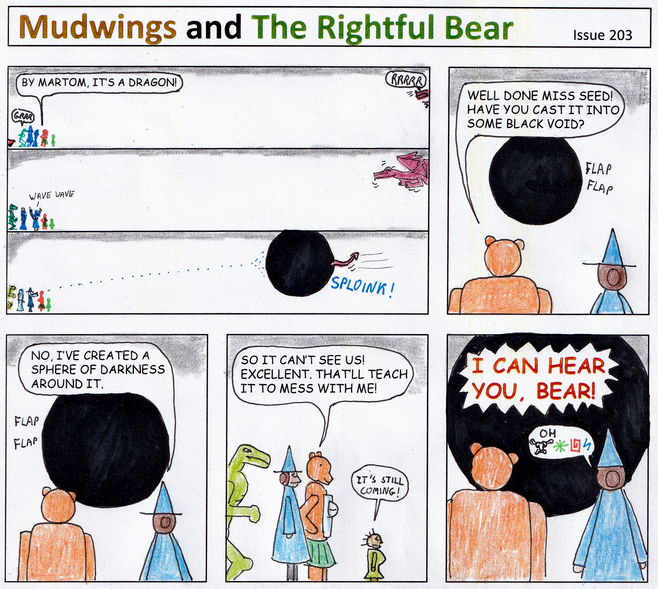 Mudwings and The Rightful Bear
Issue 203
BY MARTOM, IT'S A DRAGON!
GRRR
RRRRR
WAVE WAVE
SPLOINK!
WELL DONE MISS SEED!
HAVE YOU CAST IT INTO
SOME BLACK VOID?
FLAP
FLAP
NO, I'VE CREATED A
SPHERE OF DARKNESS
AROUND IT.
FLAP
FLAP
SO IT CAN'T SEE US!
EXCELLENT. THAT'LL TEACH
IT TO MESS WITH ME!
IT'S STILL
COMING!
I CAN HEAR
YOU, BEAR!
OH